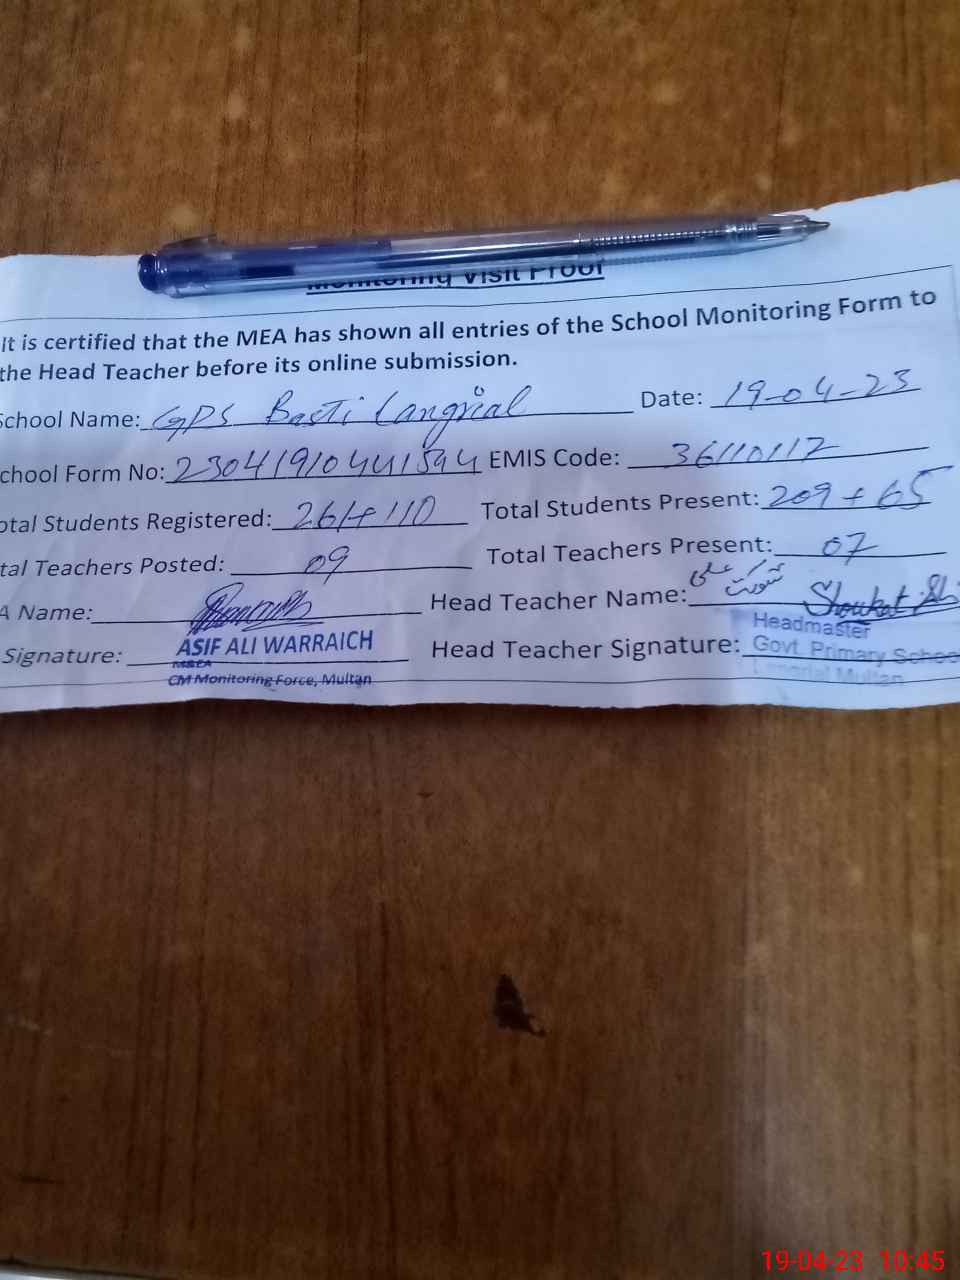 Monitoring Visit Proof
It is certified that the MEA has shown all entries of the School Monitoring Form to
the Head Teacher before its online submission.
School Name: GPS Basti Langrial Date: 19-04-23
chool Form No: 23041910441594 EMIS Code: 36110117
otal Students Registered: 261+110 Total Students Present: 209+65
tal Teachers Posted: 09 Total Teachers Present: 07
A Name: Head Teacher Name: شوکت علی
Shoukat Ali
Signature: ASIF ALI WARRAICH Head Teacher Signature: Headmaster
M&EA Govt. Primary Schoo
CM Monitoring Force, Multan Langrial Multan
19-04-23 10:45